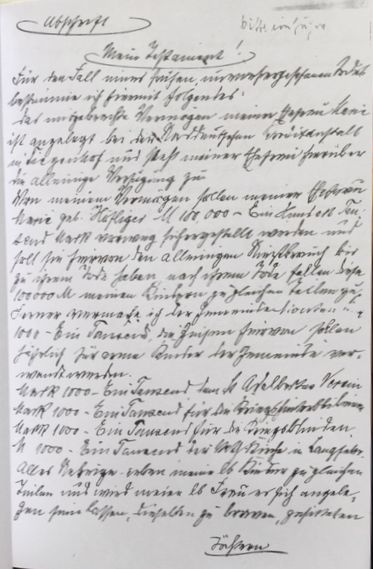 Abschrift
bitte einfügen
Mein Testament!
Für den Fall eines frühen, unvorhergesehenen Todes
bestimme ich hiermit folgendes:
das eingebrachte Vermögen meiner Ehefrau Marie
ist angelegt bei der Norddeutschen Creditanstalt
und steht meiner Ehefrau hierüber
die alleinige Verfügung zu
Von meinem Vermögen sollen meiner Ehefrau
Marie geb. M 100 000 - Ein Hundert Tau-
send Mark vorweg sichergestellt werden und
soll sie hiervon den alleinigen Nießbrauch bis
zu ihrem Tode haben nach ihrem Tode fallen diese
100000 M meinen Kindern zu gleichen Teilen zu.
Ferner vermache ich der Gemeinde
1000 - Ein Tausend, die Zinsen hiervon sollen
jährlich für arme Kinder der Gemeinde ver-
wendet werden.
Mark 1000 - Ein Tausend dem St Adalbertus Verein
Mark 1000 - Ein Tausend für die Kriegshinterbliebenen
Mark 1000 - Ein Tausend für die Kriegsblinden
M 1000 - Ein Tausend der Kirche in Langfuhr.
Alles Übrige erben meine lb Kinder zu gleichen
Teilen und wird meine lb Frau es sich angele-
gen sein lassen, dieselben zu braven, gesitteten
Töchtern